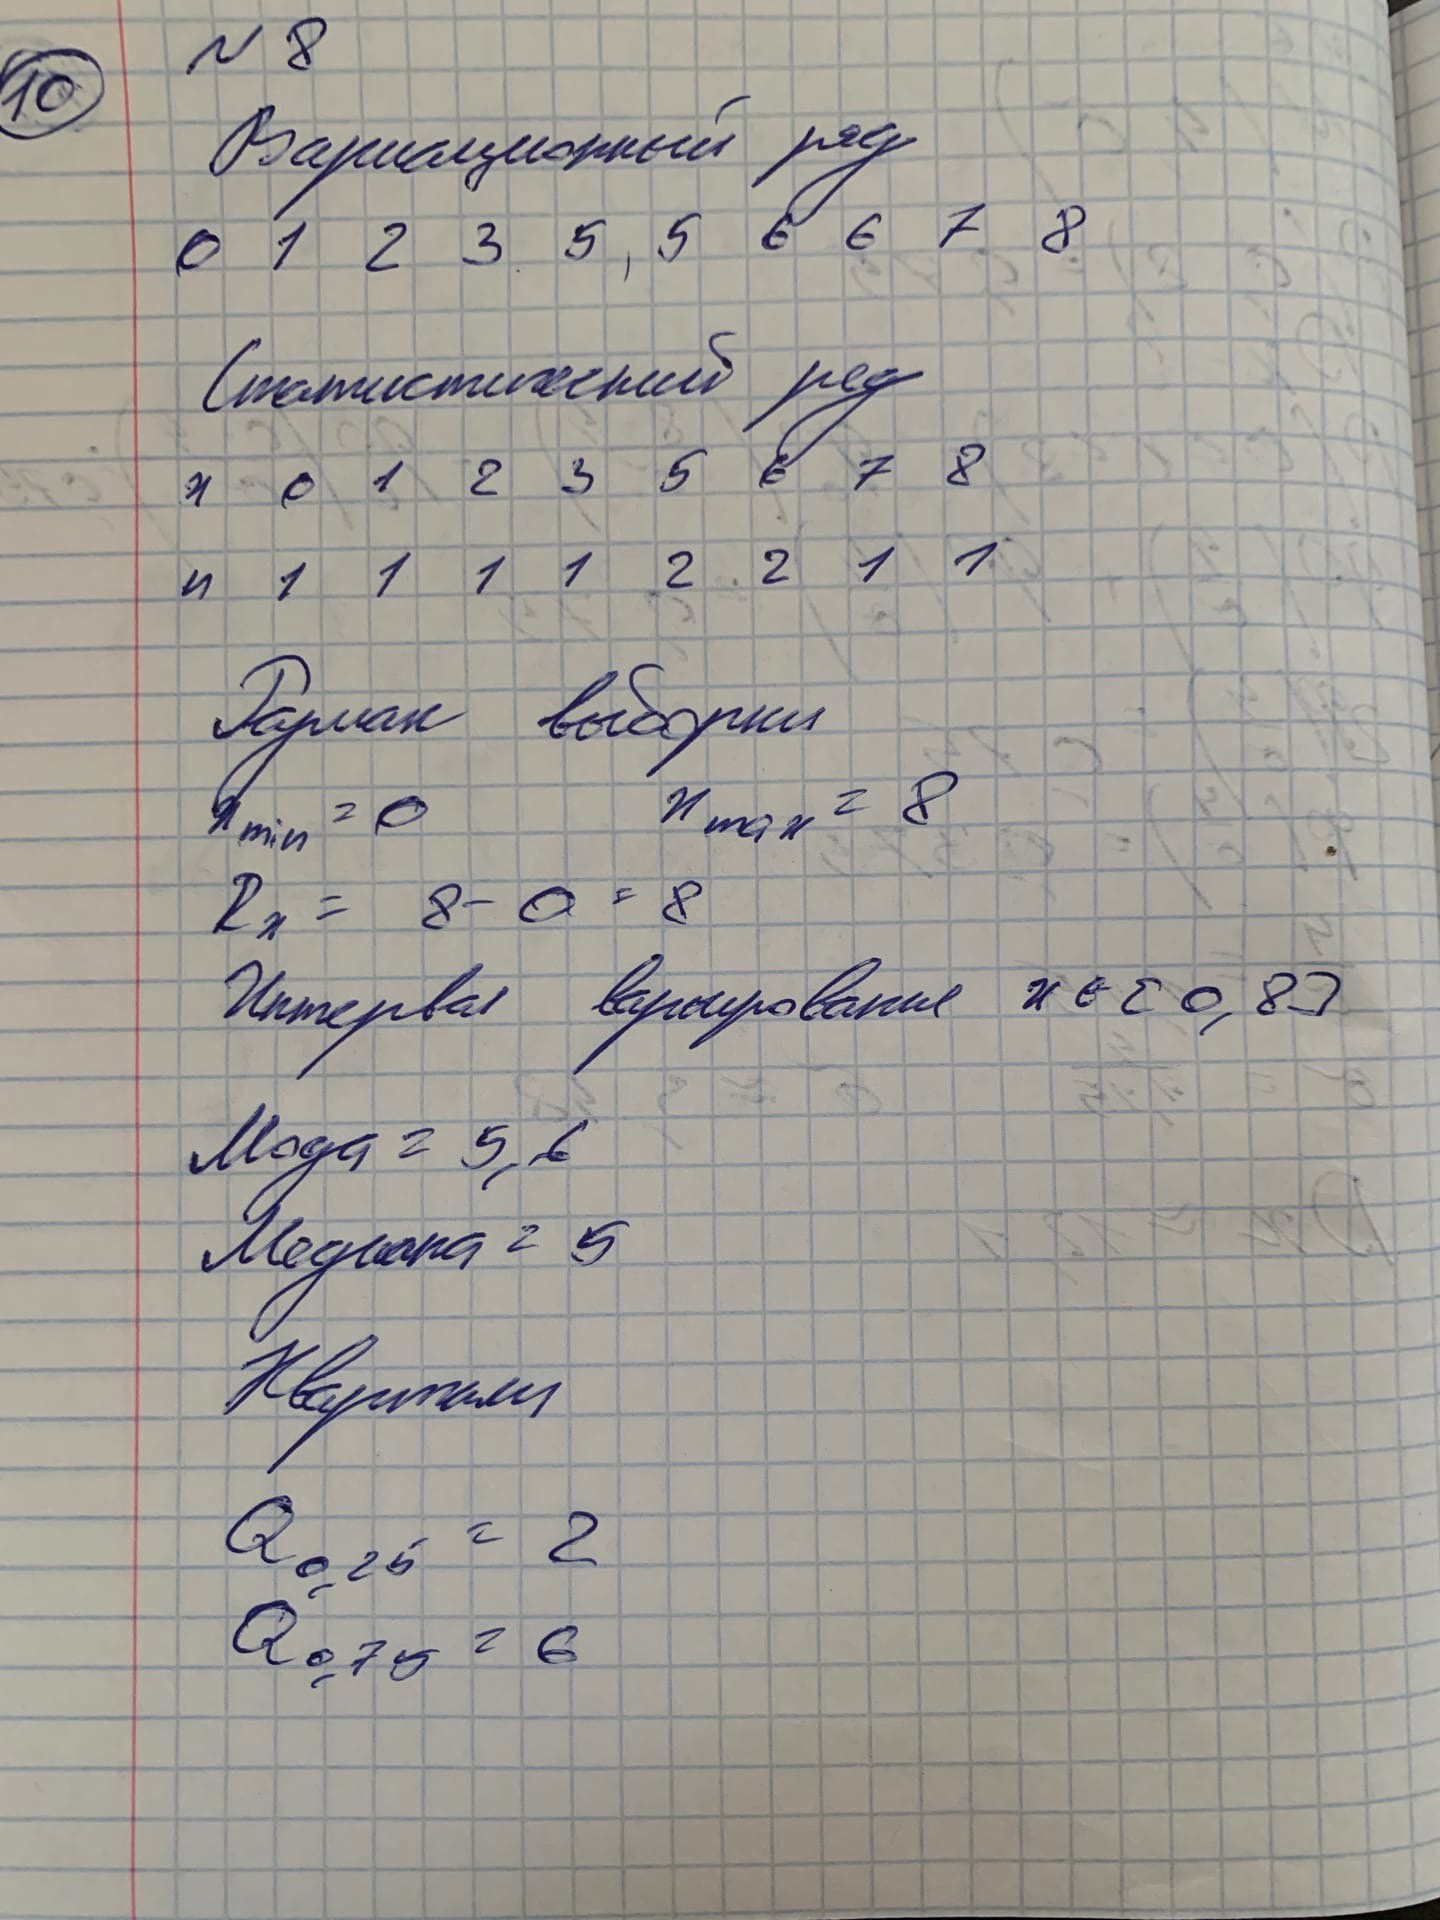 10
N 8
Вариационный ряд
0 1 2 3 5, 5 6 6 7 8
Статистический ряд
x 0 1 2 3 5 6 7 8
n 1 1 1 1 2 2 1 1
Размах выборки
x min = 0 x max = 8
R x = 8 - 0 = 8
Интервал варьирования x ∈ [0, 8]
Мода = 5, 6
Медиана = 5
Квартили
Q 0,25 = 2
Q 0,75 = 6